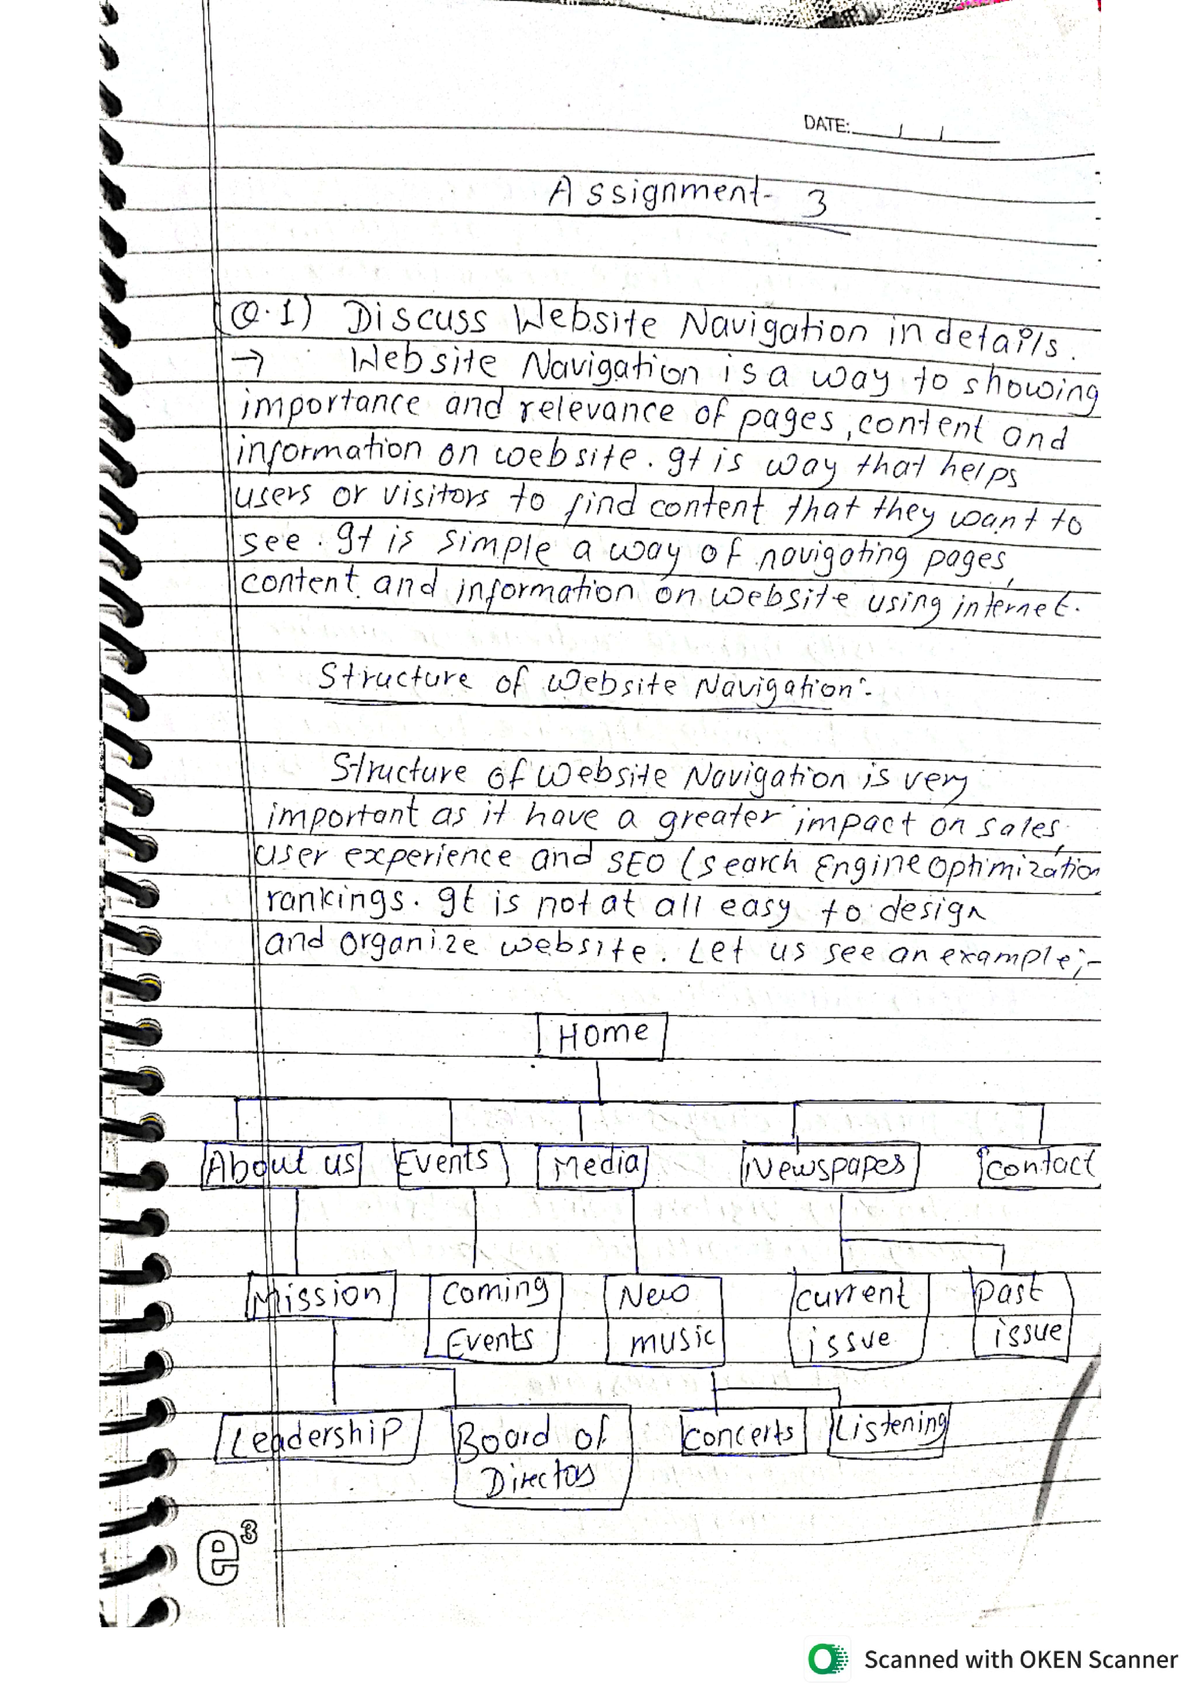 DATE:
Assignment- 3
Q.1) Discuss Website Navigation in details.
→ Website Navigation is a way to showing
importance and relevance of pages, content and
information on website. It is way that helps
users or visitors to find content that they want to
see. It is simple a way of navigating pages,
content and information on website using internet.
Structure of Website Navigation:-
Structure of Website Navigation is very
important as it have a greater impact on sales,
user experience and SEO (Search Engine Optimization
rankings. It is not at all easy to design
and organize website. Let us see an example;-
Home
About us Events Media Newspapes contact
Mission Coming Events New music current issue past issue
Leadership Board of Directos concerts Listening
e3
Scanned with OKEN Scanner